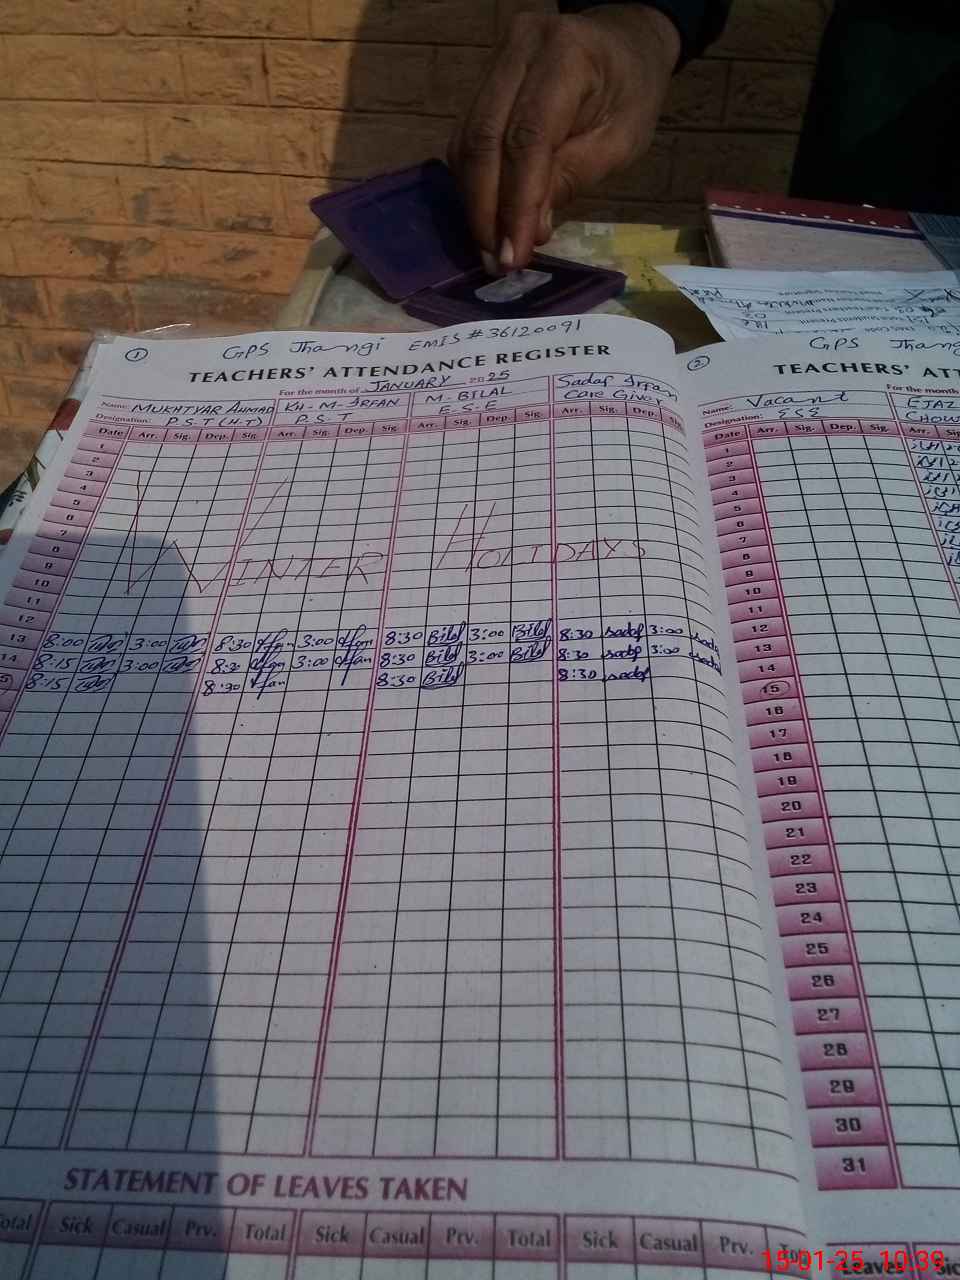 ① GPS Jhangi EMIS # 36120091
TEACHERS' ATTENDANCE REGISTER
For the month of JANUARY 2025
Name: MUKHTYAR AHMAD KH-M-IRFAN M-BILAL Sadaf Irfan
Designation: P.S.T (H.T) P.S.T E.S.E Care Giver
Date Arr. Sig. Dep. Sig. Arr. Sig. Dep. Sig. Arr. Sig. Dep. Sig. Arr. Sig. Dep. Sig.
1
2
3
4
5
6
7
8
9
10
11
12
WINTER HOLIDAYS
13 8:00 3:00 8:30 Irfan 3:00 Irfan 8:30 Bilal 3:00 Bilal 8:30 sadaf 3:00 sada
14 8:15 3:00 8:30 Irfan 3:00 Irfan 8:30 Bilal 3:00 Bilal 8:30 sadaf 3:00 sadaf
5 8:15 8:30 Irfan 8:30 Bilal 8:30 sadaf
STATEMENT OF LEAVES TAKEN
otal Sick Casual Prv. Total Sick Casual Prv. Total Sick Casual Prv. To
② GPS Jhang
TEACHERS' ATT
For the month
Name: Vacant EJAZ
Designation: ESE CHOW
Date Arr. Sig. Dep. Sig. Arr. Si
1
2
3
4
5
6
7
8
9
10
11
12
13
14
15
16
17
18
19
20
21
22
23
24
25
26
27
28
29
30
31
Leaves Sic
15-01-25 10:39